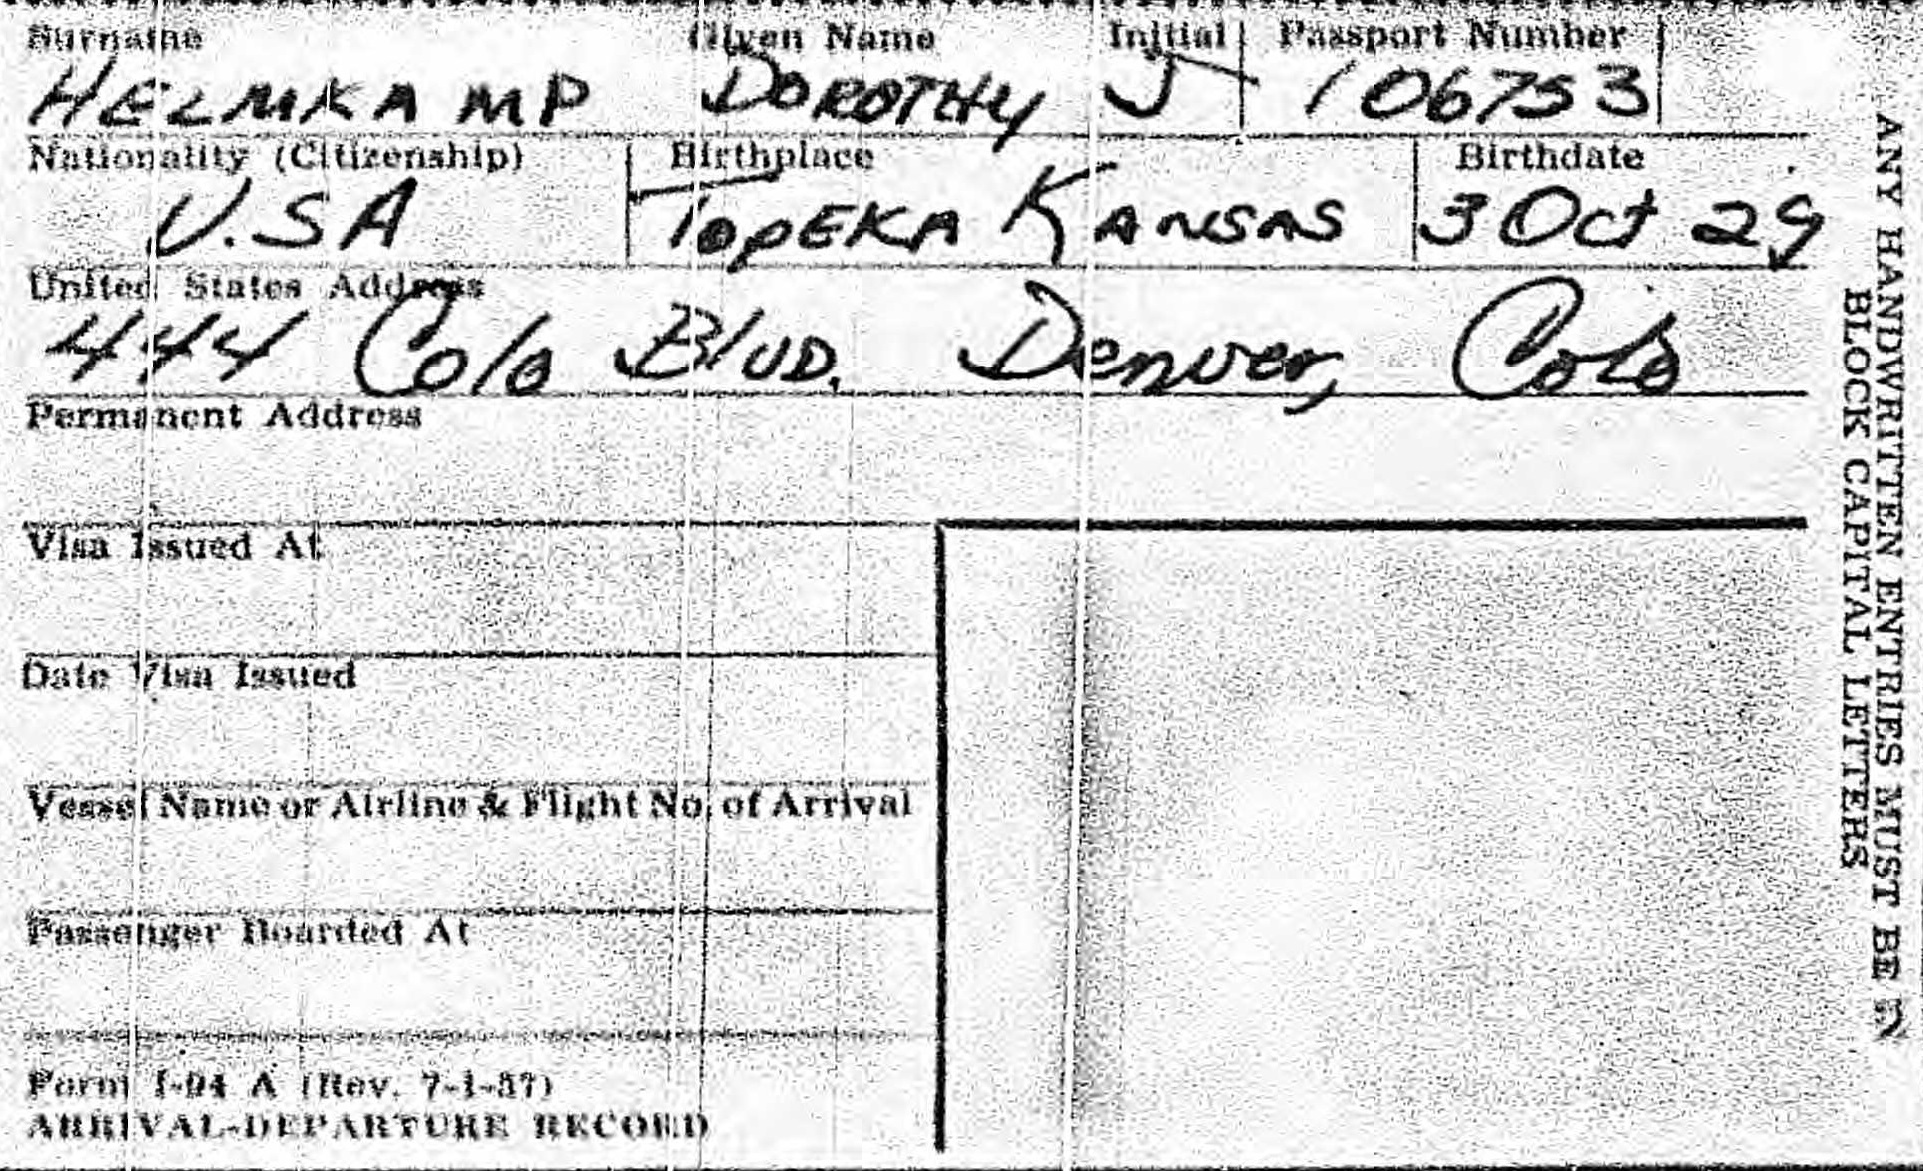 Surname Given Name Initial Passport Number
HELMKAMP DOROTHY J 106753
Nationality (Citizenship) Birthplace Birthdate
U.SA TOPEKA KANSAS 3 Oct 29
United States Address
444 Colo BLVD. Denver, Colo
Permanent Address
Visa Issued At
Date Visa Issued
Vessel Name or Airline & Flight No. of Arrival
Passenger Boarded At
Form I-94 A (Rev. 7-1-57)
ARRIVAL-DEPARTURE RECORD
ANY HANDWRITTEN ENTRIES MUST BE IN
BLOCK CAPITAL LETTERS